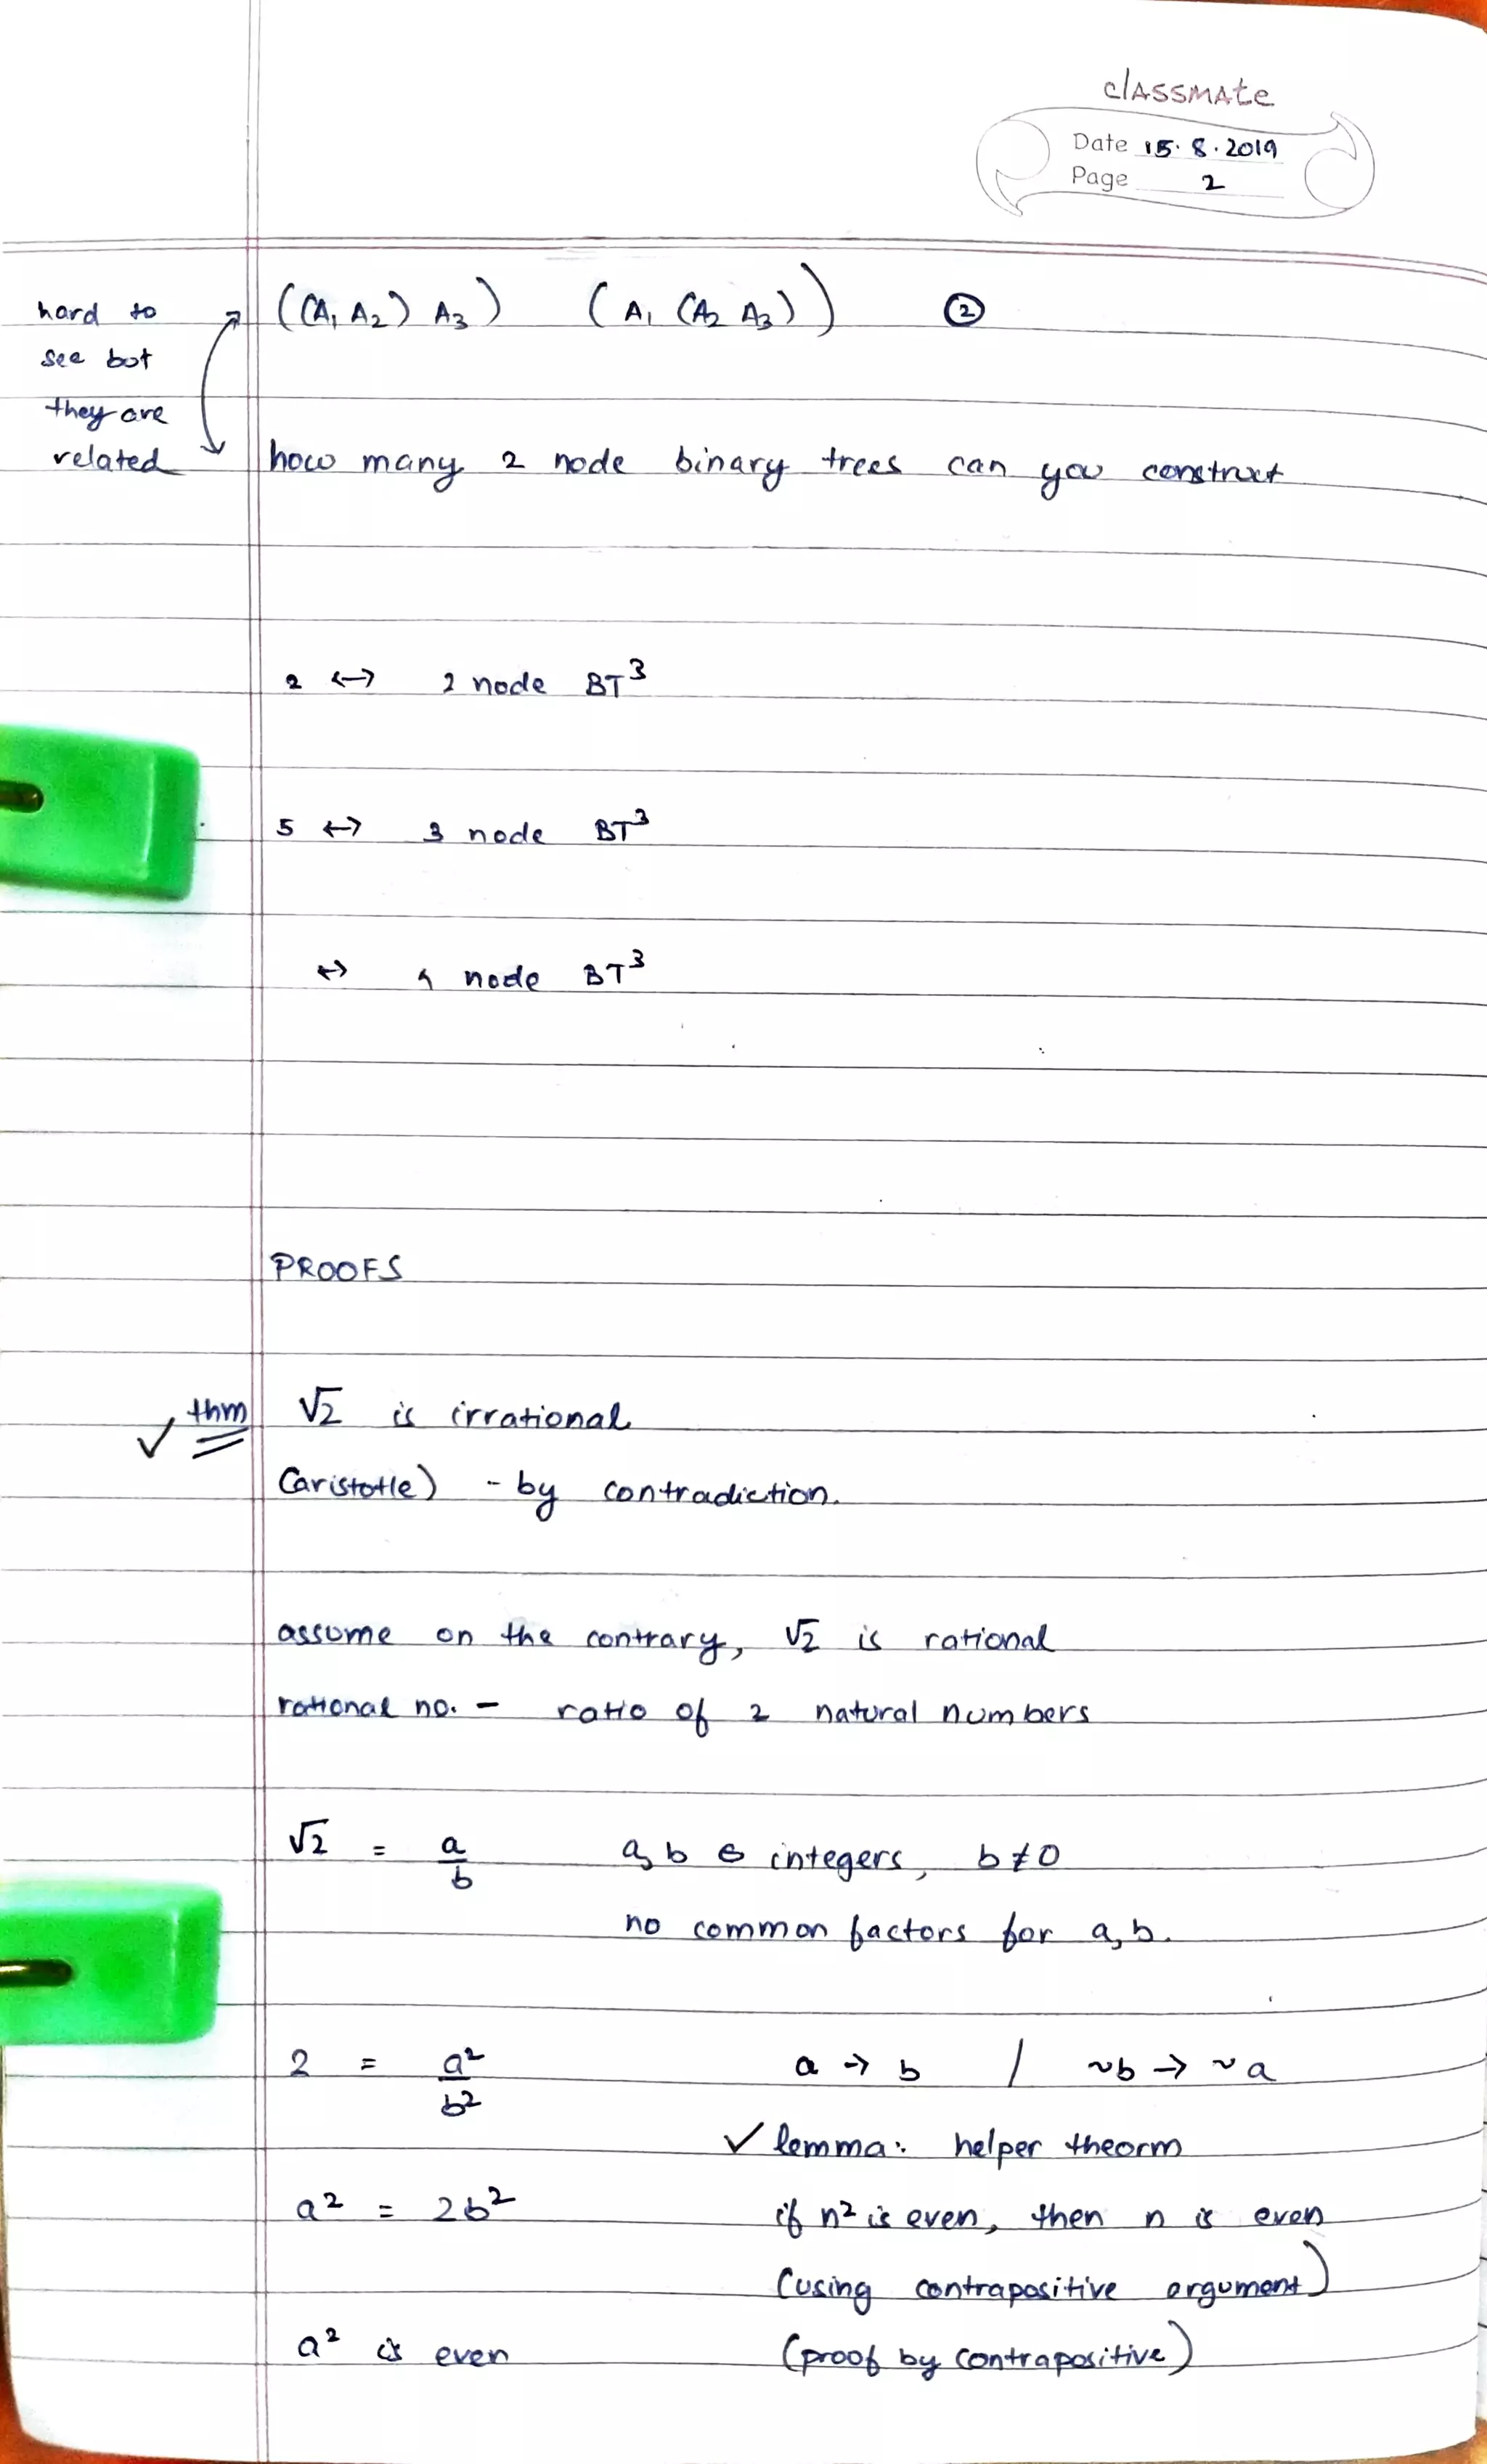 classmate
Date 15.8.2019
Page 2
((A₁ A₂) A₃) (A₁ (A₂ A₃)) ②
hard to
see but
they are
related
how many 2 node binary trees can you construct
2 ↔ 2 node BT³
5 ↔ 3 node BT³
↔ 4 node BT³
PROOFS
✓ thm √2 is irrational
(aristotle) - by contradiction.
assume on the contrary, √2 is rational
rational no. - ratio of 2 natural numbers
√2 = a/b a, b ∈ integers, b ≠ 0
no common factors for a, b.
2 = a²/b² a → b / ~b → ~a
✓ lemma: helper theorm
a² = 2b² if n² is even, then n is even
(using contrapositive argument)
a² is even (proof by contrapositive)